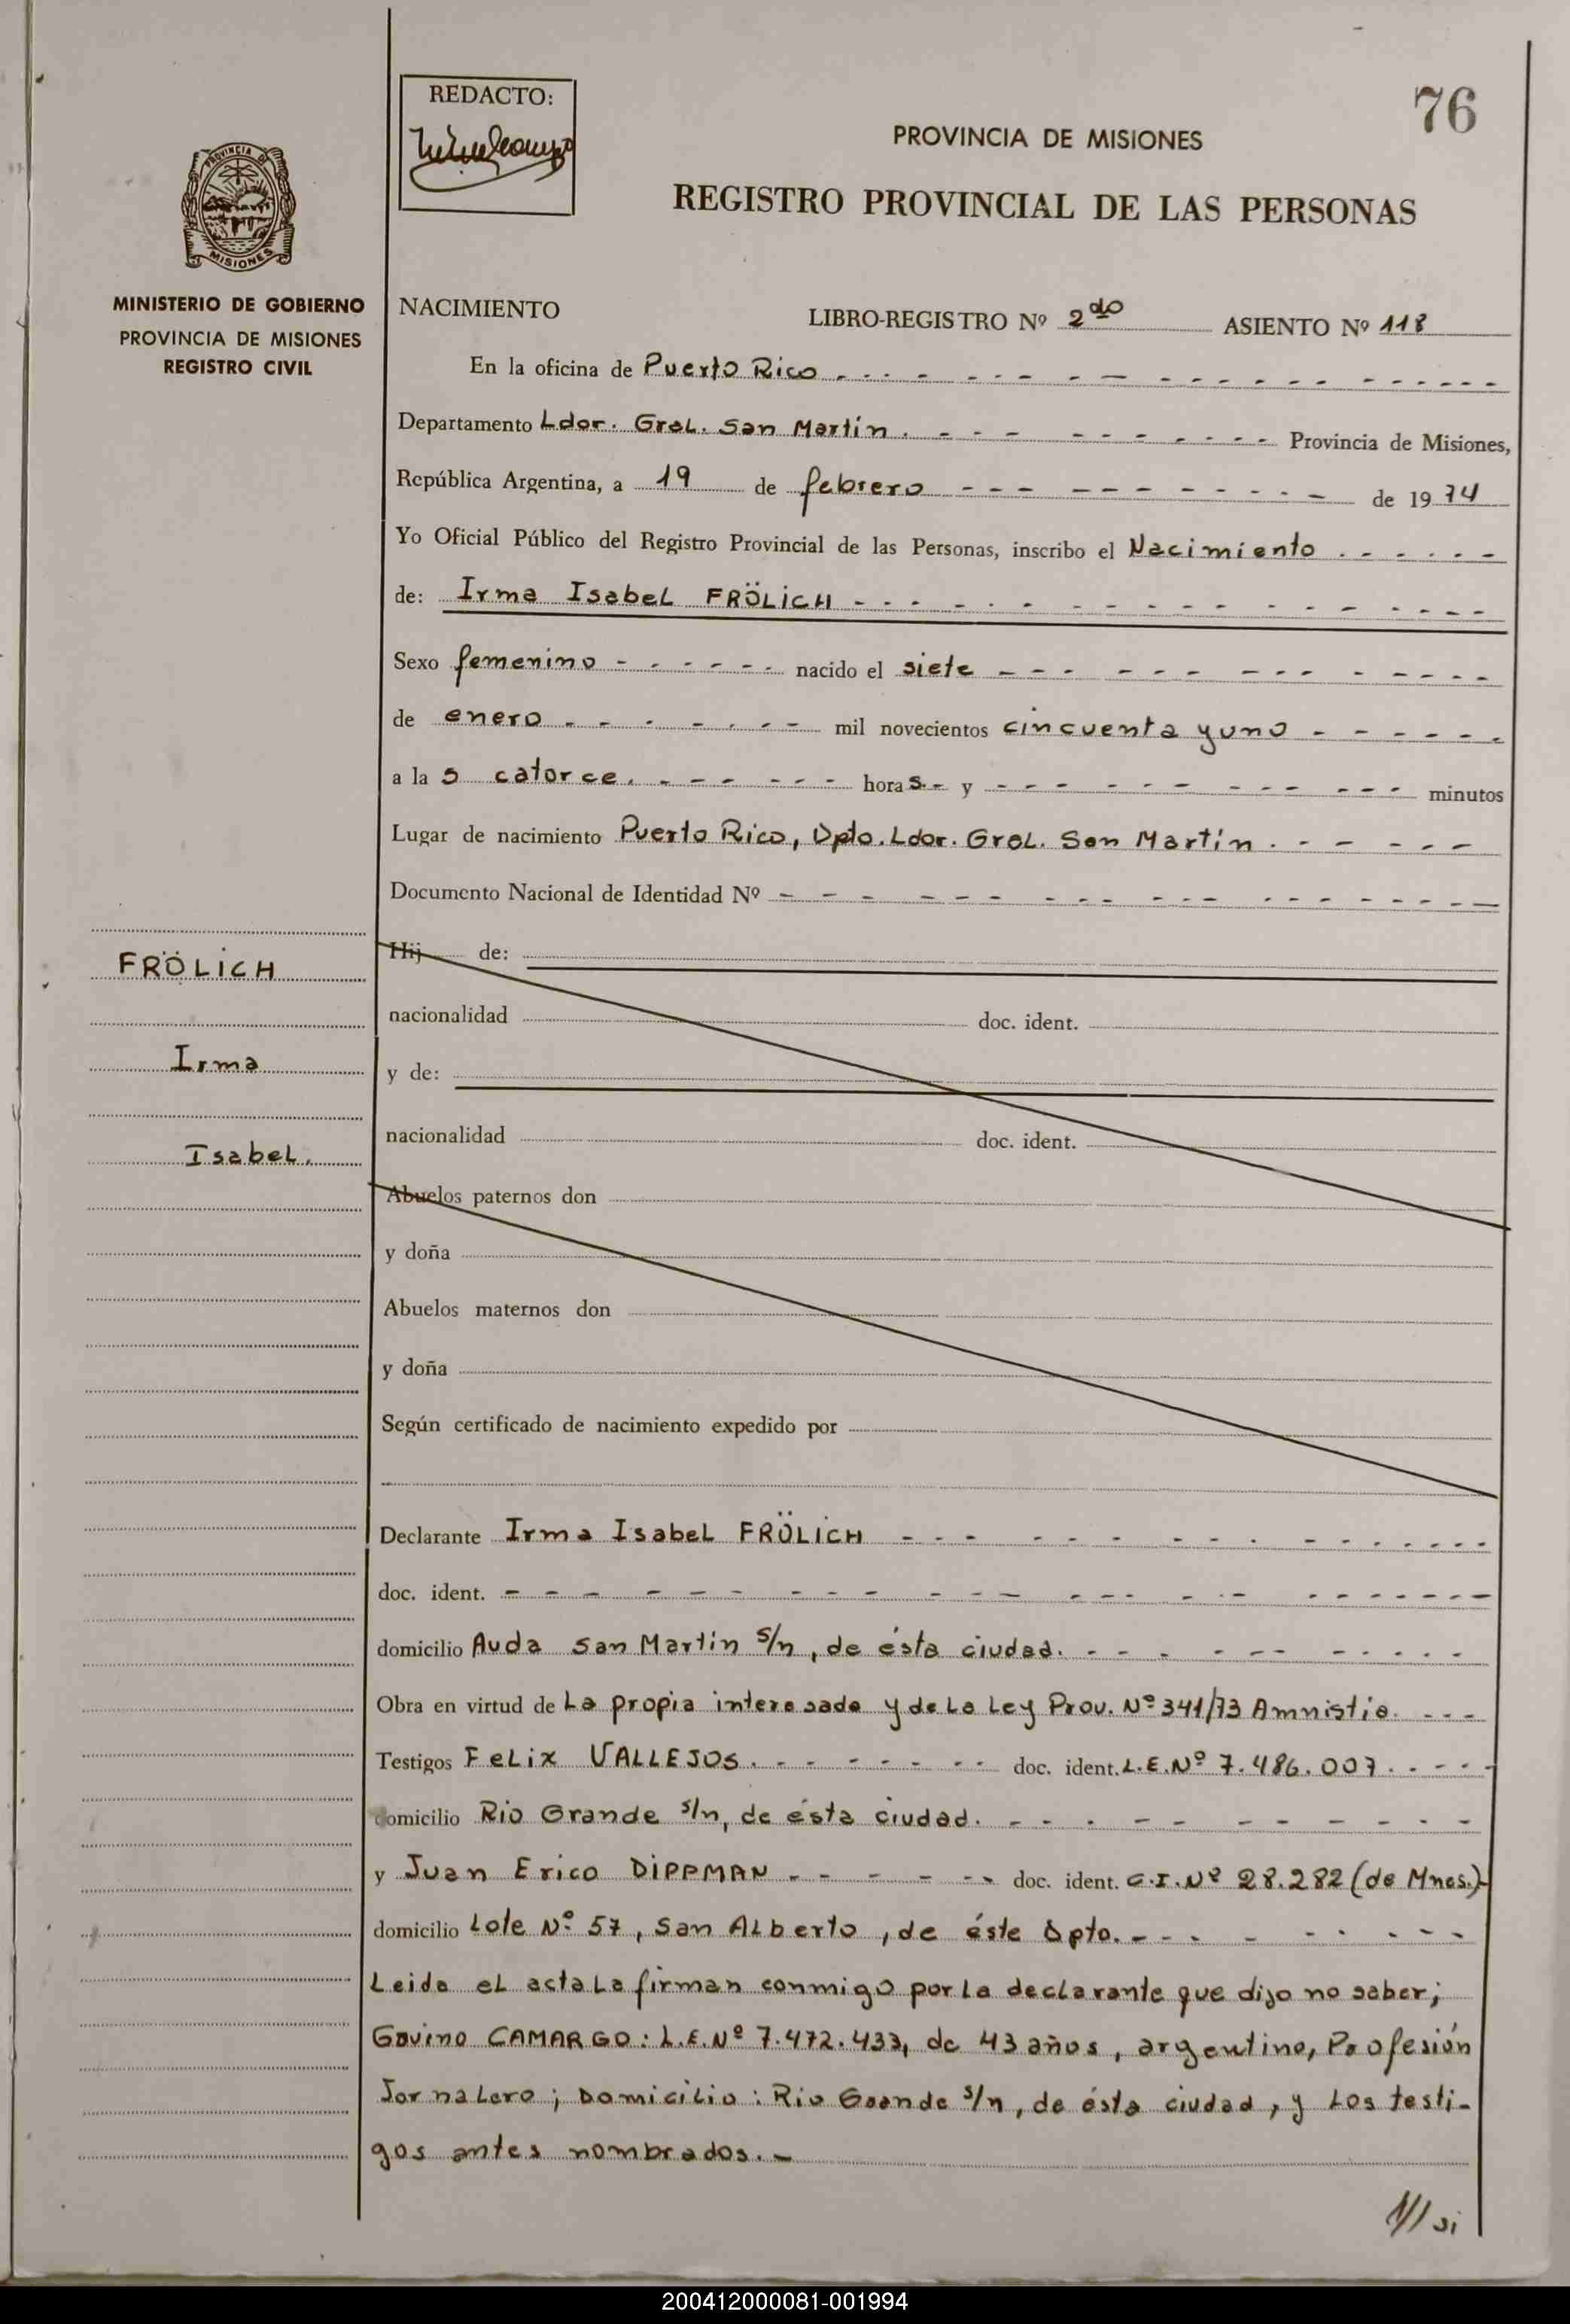 76
REDACTO:
PROVINCIA DE MISIONES
REGISTRO PROVINCIAL DE LAS PERSONAS
PROVINCIA DE
MISIONES
MINISTERIO DE GOBIERNO
PROVINCIA DE MISIONES
REGISTRO CIVIL
NACIMIENTO LIBRO-REGISTRO Nº 2do ASIENTO Nº 118
En la oficina de Puerto Rico
Departamento Ldor. Gral. San Martín. Provincia de Misiones,
República Argentina, a 19 de febrero de 1974
Yo Oficial Público del Registro Provincial de las Personas, inscribo el Nacimiento
de: Irma Isabel FRÖLICH
Sexo femenino nacido el siete
de enero mil novecientos cincuenta y uno
a las catorce. horas y minutos
Lugar de nacimiento Puerto Rico, Dpto. Ldor. Gral. San Martín.
Documento Nacional de Identidad Nº
FRÖLICH
Irma
Isabel.
Hij de:
nacionalidad doc. ident.
y de:
nacionalidad doc. ident.
Abuelos paternos don
y doña
Abuelos maternos don
y doña
Según certificado de nacimiento expedido por
Declarante Irma Isabel FRÖLICH
doc. ident.
domicilio Avda San Martín s/n, de ésta ciudad.
Obra en virtud de La propia interesada y de La Ley Prov. Nº 341/73 Amnistia.
Testigos Felix VALLEJOS. doc. ident. L.E.Nº 7.486.007.
domicilio Rio Grande s/n, de ésta ciudad.
y Juan Erico DIPPMAN doc. ident. C.I.Nº 28.282 (de Mnes.)
domicilio Lote Nº 57, San Alberto, de éste Dpto.
Leida el acta La firman conmigo por la declarante que dijo no saber;
Gavino CAMARGO: L.E.Nº 7.472.433, de 43 años, argentino, Profesión
Jornalero; Domicilio: Rio Grande s/n, de ésta ciudad, y Los testi-
gos antes nombrados.-
200412000081-001994